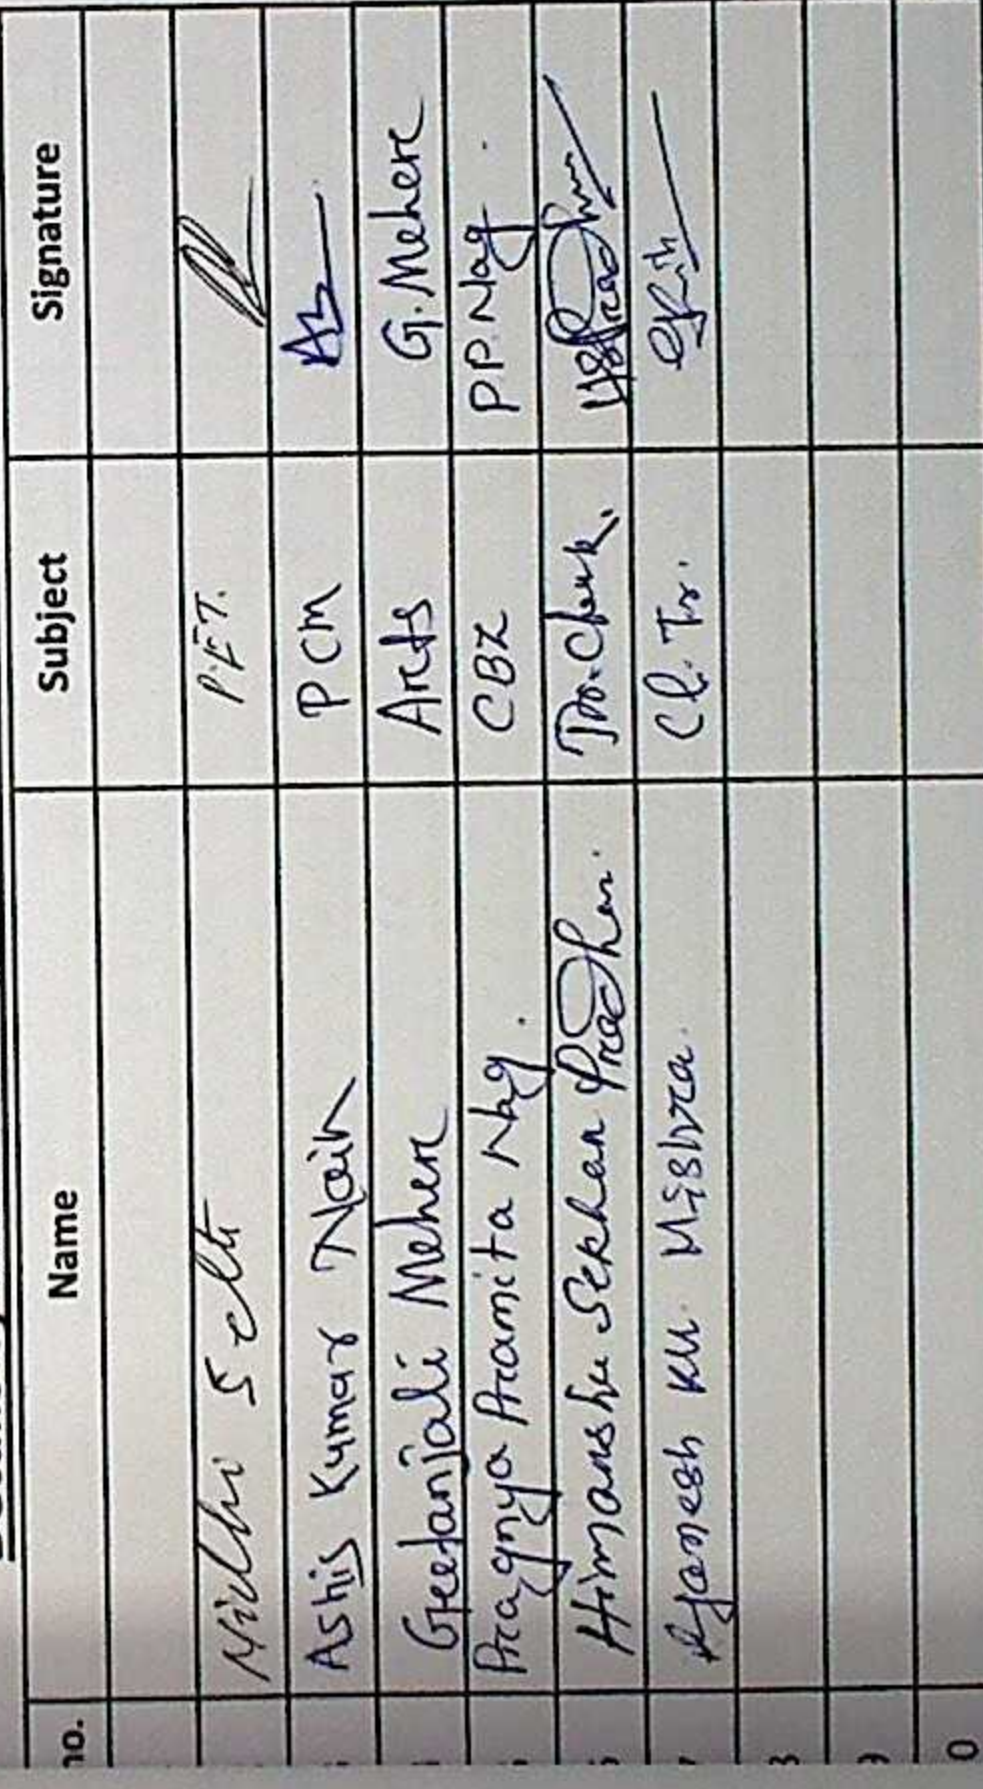 no. Name Subject Signature
Nidhi Seth P.E.T.
Ashis Kumar Naik PCM
Geetanjali Meher Arts G. Meher
Pragnya Pramita Nag. CBZ P.P. Nag.
Himanshu Sekhar Pradhan.
Gyanesh Ku. Mishra. Cl. Tr.
8
9
0